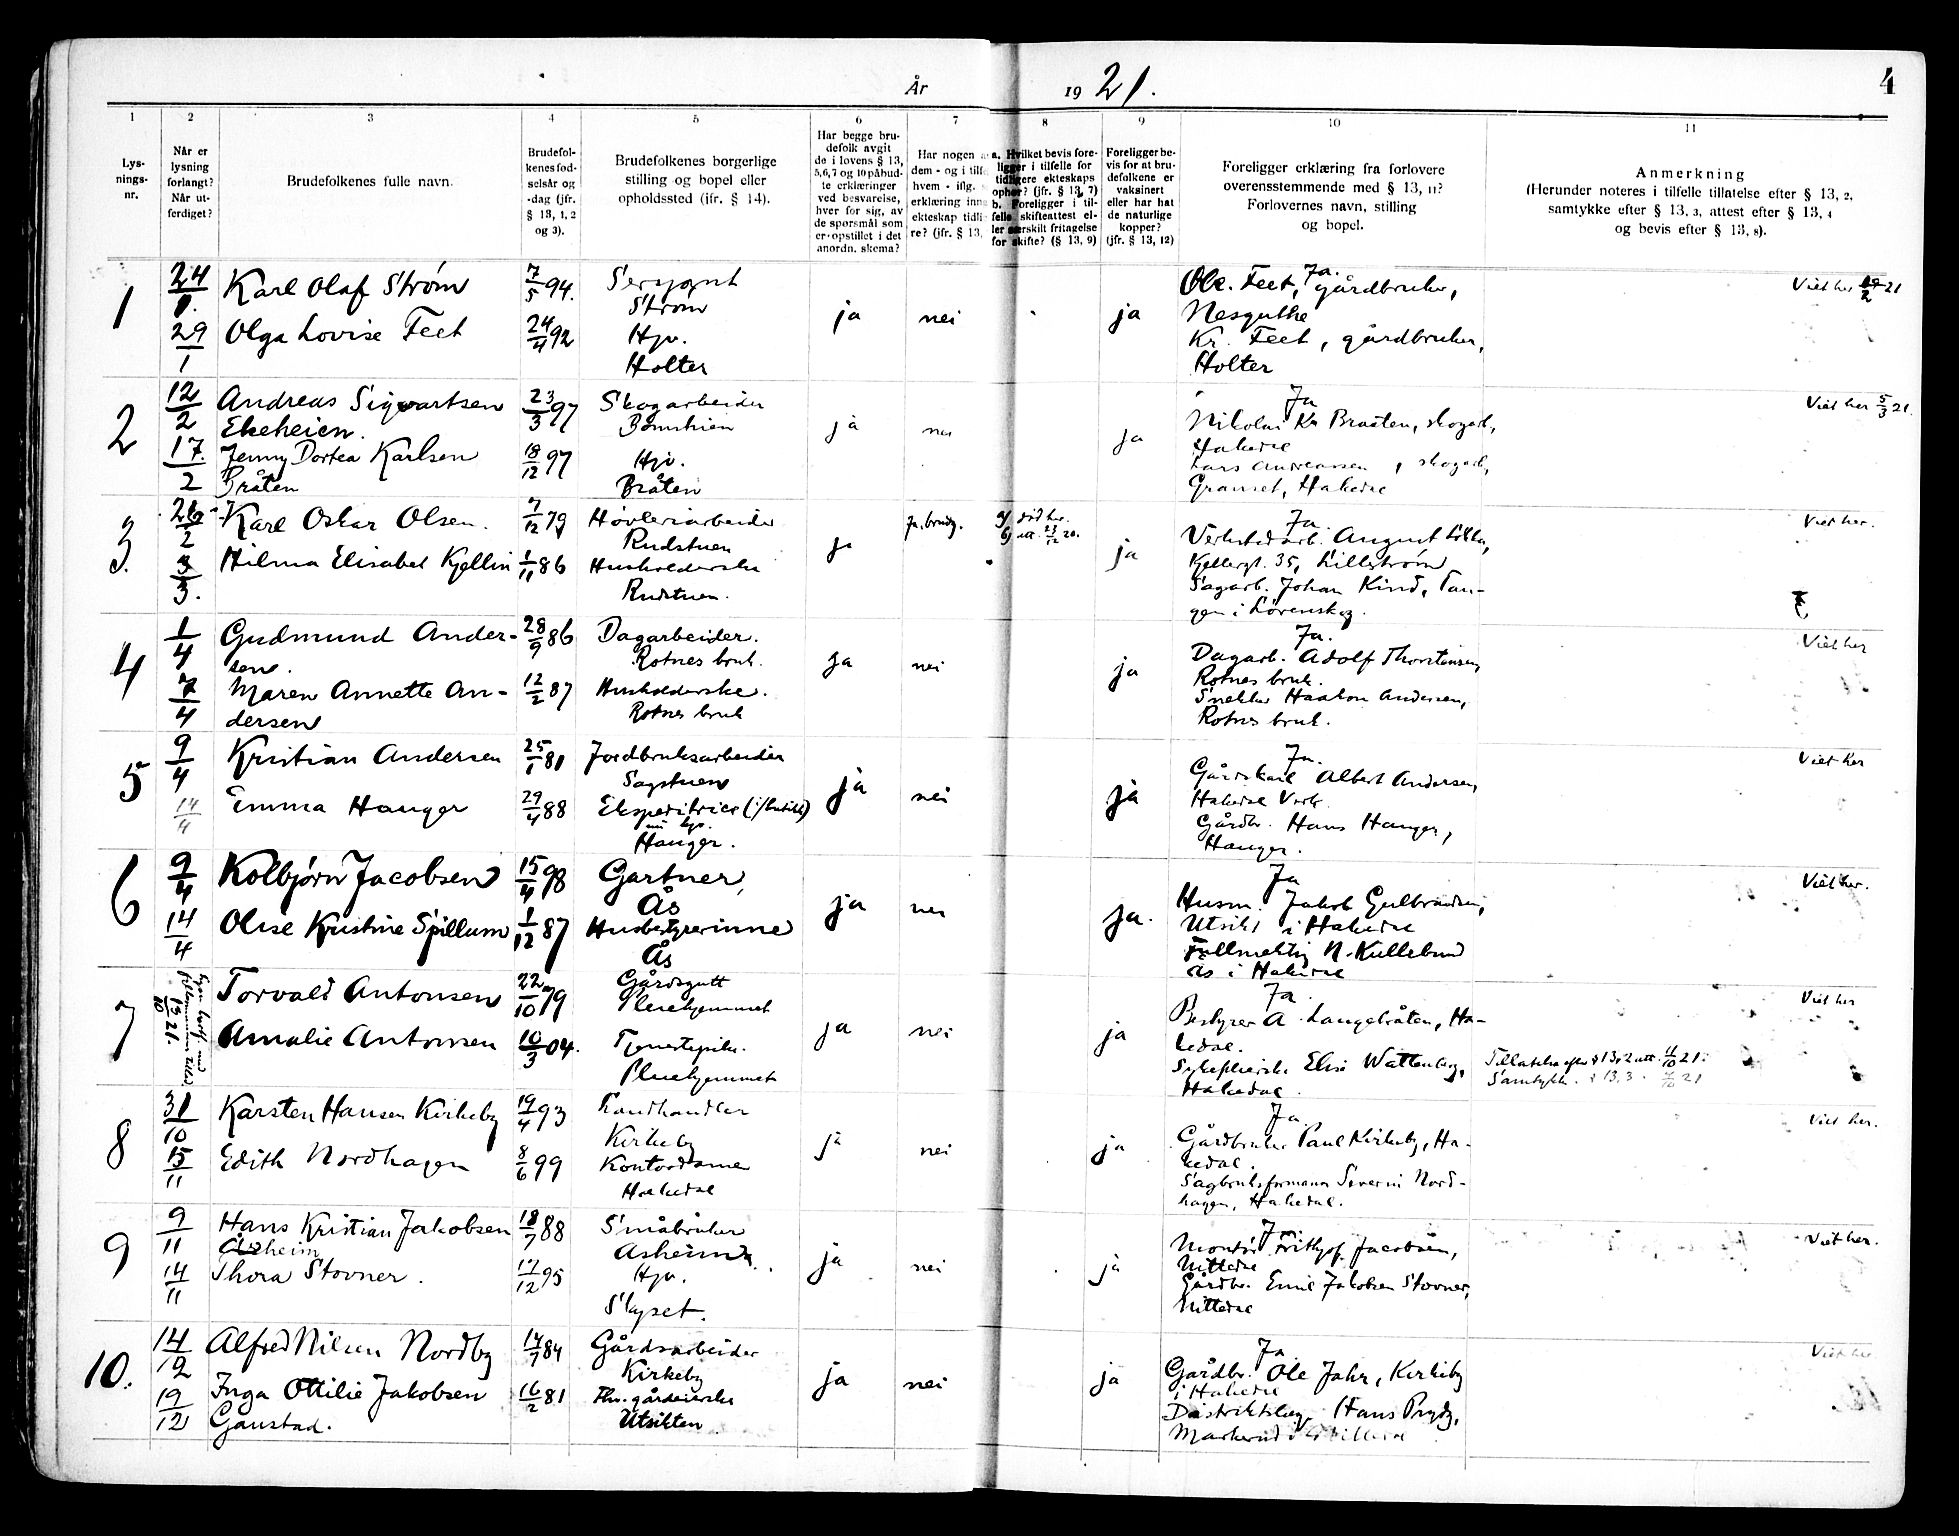 År 1921.
4
1 2 3 4 5 6 7 8 9 10 11
Lys-
nings-
nr.
Når er
lysning
forlangt?
Når ut-
ferdiget?
Brudefolkenes fulle navn.
Brudefol-
kenes fød-
selsår og
-dag (jfr.
§ 13, 1, 2
og 3).
Brudefolkenes borgerlige
stilling og bopel eller
opholdssted (jfr. § 14).
Har begge bru-
defolk avgit
de i lovens § 13,
5,6,7 og 10 påbud-
te erklæringer
ved besvarelse,
hver for sig, av
de spørsmål som
er opstillet i det
anordn. skema?
Har nogen a
dem - og i tilf
hvem - iflg.
erklæring inng
ekteskap tidli
re? (jfr. § 13,
a. Hvilket bevis fore-
ligger i tilfelle for
tidligere ekteskaps
ophør? (jfr. § 13, 7)
b. Foreligger i til-
felle skifteattest el-
ler særskilt fritagelse
for skifte? (§ 13, 9)
Foreligger be-
vis for at bru-
defolkene er
vaksinert
eller har hat
de naturlige
kopper?
(jfr. § 13, 12)
Foreligger erklæring fra forlovere
overensstemmende med § 13, 11?
Forlovernes navn, stilling
og bopel.
Anmerkning
(Herunder noteres i tilfelle tillatelse efter § 13, 2,
samtykke efter § 13, 3, attest efter § 13, 4
og bevis efter § 13, 8).
1
24/1.
29/1
Karl Olaf Strøm
Olga Lovise Feet
7/5 94.
24/4 92
Strøm
Hjv.
Holter
ja
nei
ja
Ja.
Ole Feet, gårdbruker,
Kr. Feet, gårdbruker,
Holter
Viet her 21
2
12/2
17./2
Andreas Sigvartsen
Ekeheien.
Jenny Dortea Karlsen
Bråten
23/3 97
18/12 97
Skogarbeider
Hjv.
Bråten
ja
nei
ja
Ja
Nikolai Kr Braaten, skogarb,
Hakedal
Lars Andreassen, skogarb,
Granset, Hakedal
Viet her 5/3 21.
3.
26/2
3/3.
Karl Oskar Olsen.
Hilma Elisabet Kjellin
7/12 79
1/11 86
Høvleriarbeider
Rudstuen
Husholderske
Rudstuen.
ja
Ja, brudg.
a/ død her.
b/ att. 23/12 20.
ja
Ja.
Verkstedarb. August
Kjellergt. 35, Lillestrøm
Sagarb. Johan Kind, Tan-
gen i Lørenskog.
Viet her.
4
1/4
7/4
Gudmund Ander-
sen.
Maren Annette An-
dersen
28/9 86
12/2 87
Dagarbeider.
Rotnes bruk.
Husholderske.
Rotnes bruk
ja
nei
ja
Ja.
Dagarb. Adolf Thorstensen,
Rotnes bruk.
Snekker Haakon Andersen,
Rotnes bruk.
Viet her
5
9/4
14/4
Kristian Andersen
Emma Hauger
25/1 81
29/4 88
Jordbruksarbeider
Sagstuen
Ekspeditrice (i/butikk)
nu hjv.
Hauger.
ja
nei
ja
Ja.
Gårdskarl Albert Andersen,
Hakedal Verk.
Gårdbr. Hans Hauger,
Hauger.
Viet her
6
9/4
14/4
Kolbjørn Jacobsen
Olise Kristine Spillum
15/4 98
1/12 87
Gartner,
Ås
Husbestyrerinne
Ås
ja
nei
ja.
Ja
Husm. Jakob Gulbrandsen,
Utsikt i Hakedal
Fullmektig N. Kullebund
Ås i Hakedal
Viet her.
7
13/10 21.
Torvald Antonsen
Amalie Antonsen
22/10 79
10/3 04.
Gårdsgutt
Pleiehjemmet
Tjenestepike.
Pleiehjemmet
ja
nei
ja
Ja.
Bestyrer A. Langebråten, Ha-
kedal.
Sykepleierske Elise Wattenberg,
Hakedal.
Tillatelse efter § 13, 2 att. 11/10 21.
Samtykke § 13, 3. 21
Viet her
8
31/10
15/11
Karsten Hansen Kirkeby
Edith Nordhagen
19/4 93
8/6 99
Landhandler
Kirkeby
Kontordame
Hakedal
ja
nei
ja
Ja.
Gårdbruker Paul Kirkeby, Ha-
kedal.
Sagbruksformann Severin Nord-
hagen, Hakedal.
Viet her.
9
9/11
14/11
Hans Kristian Jakobsen
Åsheim
Thora Stovner.
18/7 88
17/12 95
Småbruker
Åsheim.
Hjv.
Skyset.
ja
nei
ja
Ja.
Montør Frithjof Jacobsen,
Nittedal
Gårdbr. Emil Jakobsen Stovner,
Nittedal
Viet her.
10.
14/12
19/12
Alfred Nilsen Nordby
Inga Ottilie Jakobsen
Gaustad.
17/7 84
16/2 81
Gårdsarbeider
Kirkeby
Utsikten
ja
nei
ja
Ja
Gårdbr. Ole Jahr, Kirkeby
i Hakedal
Distriktslæge Hans Prydz,
Viet her